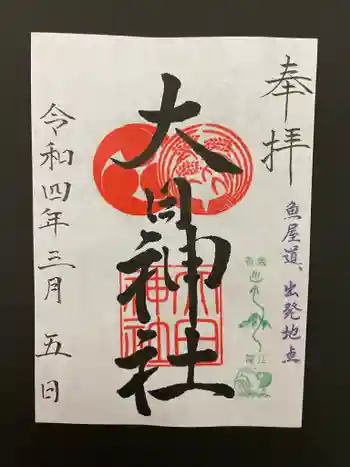 奉拝
魚屋道、出発地点
大日神社
大日神社
令和四年三月五日